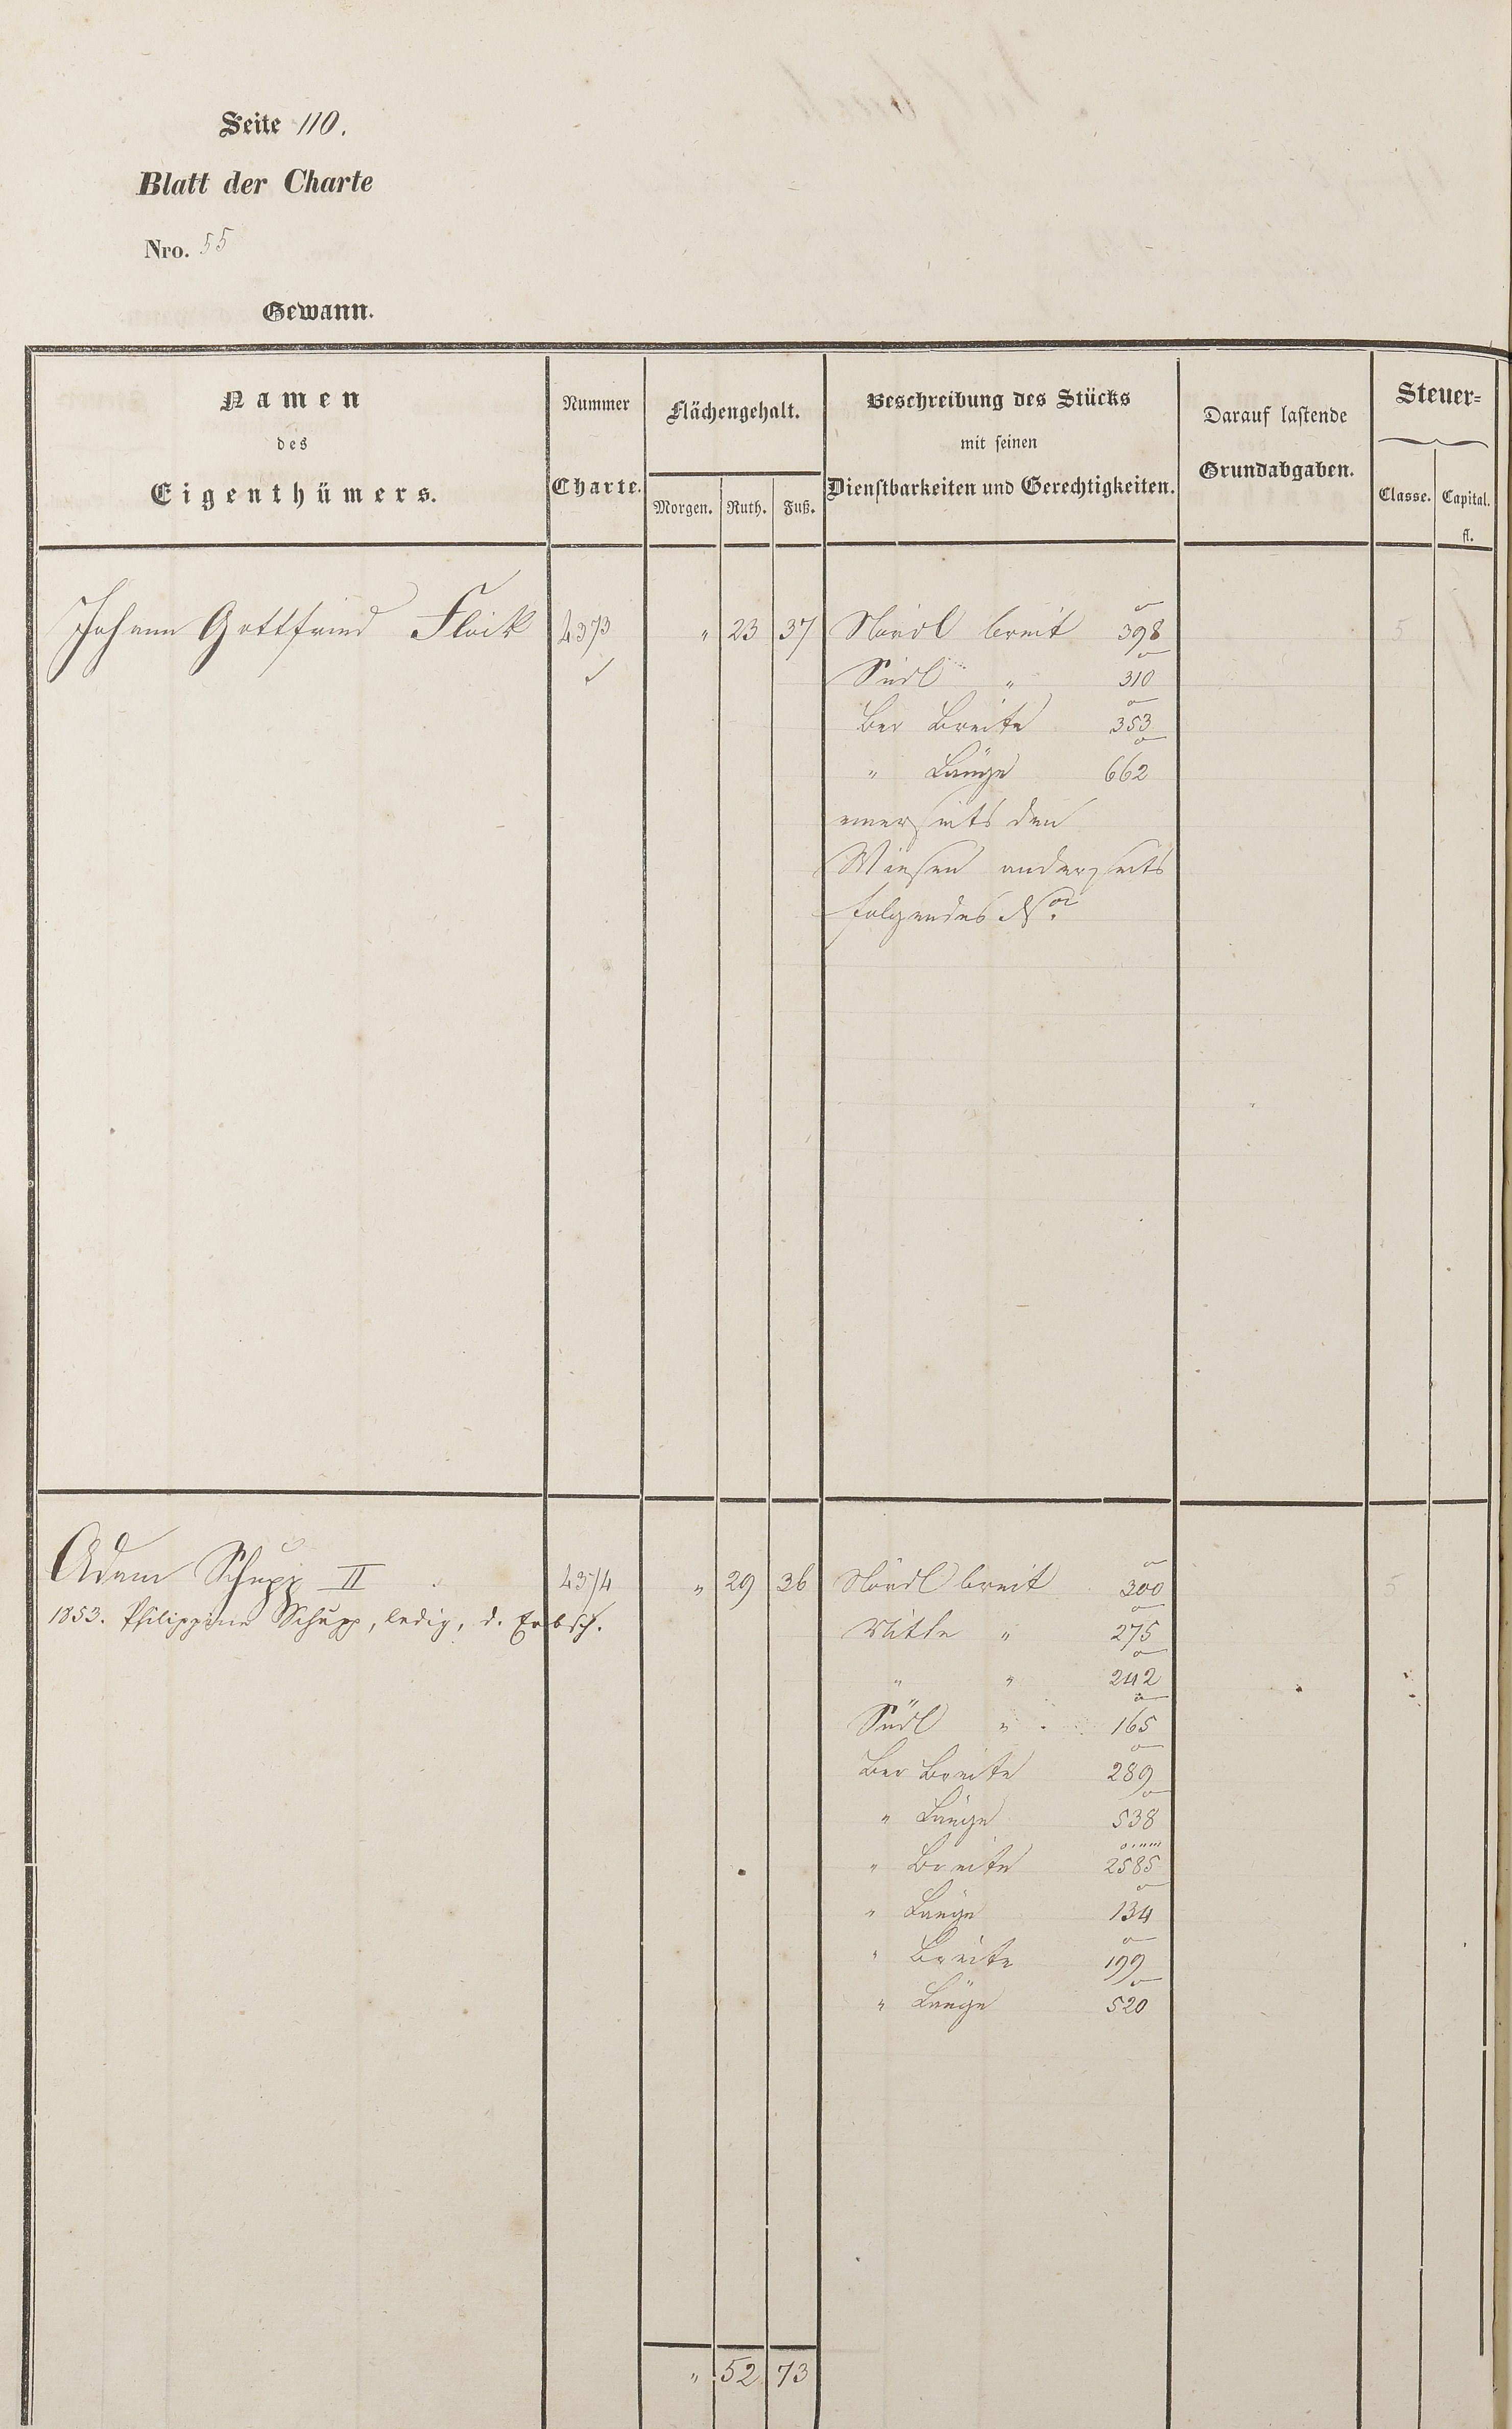 Seite 110.
Blatt der Charte
Nro. 55
Gewann.
Namen
des
Eigenthümers.
Nummer
Charte.
Flächengehalt.
Morgen. Ruth. Fuß.
Beschreibung des Stücks
mit seinen
Dienstbarkeiten und Gerechtigkeiten.
Darauf lastende
Grundabgaben.
Steuer=
Classe. Capital.
fl.
Johann Gottfried Flick 4373 " 23 37 Nördl breit 398 5
Südl " 310
Ber Breite 353
" Länge 662
einerseits den
Wiesen anderseits
folgendes No
Adam Schupp II 4374 " 29 36 Nördl breit 300 5
1853. Philippine Schupp, ledig, d. Erbsch.
Mittle " 275
" " 242
Südl " 165
Ber Breite 289
" Länge 538
" Breite 2585
" Länge 134
" Breite 199
" Länge 520
" 52 73